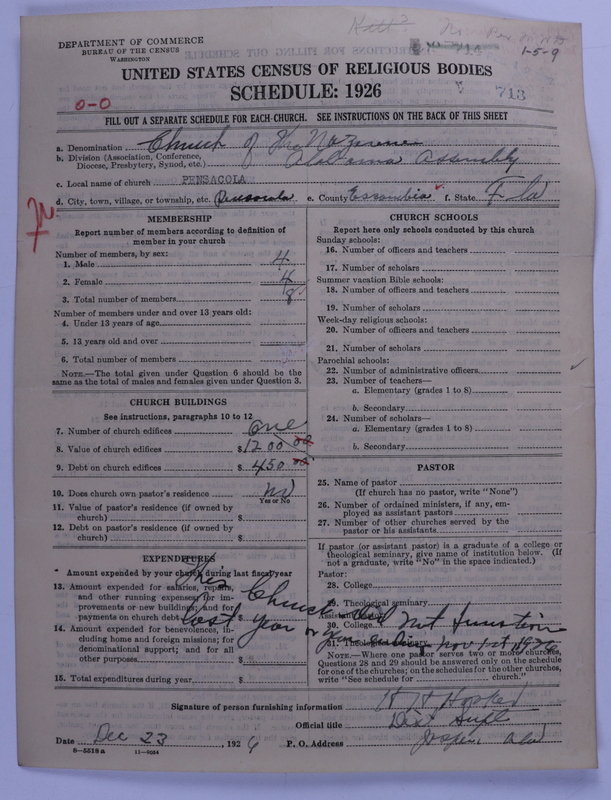 DEPARTMENT OF COMMERCE
BUREAU OF THE CENSUS
WASHINGTON
1-5-9
UNITED STATES CENSUS OF RELIGIOUS BODIES
SCHEDULE: 1926
713
0-0
FILL OUT A SEPARATE SCHEDULE FOR EACH CHURCH. SEE INSTRUCTIONS ON THE BACK OF THIS SHEET
a. Denomination Church of The Nazarene
b. Division (Association, Conference, Diocese, Presbytery, Synod, etc.) Alabama Assembly
c. Local name of church PENSACOLA
d. City, town, village, or township, etc. Pensacola e. County Escambia f. State Fla
MEMBERSHIP
Report number of members according to definition of member in your church
Number of members, by sex:
1. Male 4
2. Female 4
3. Total number of members 8
Number of members under and over 13 years old:
4. Under 13 years of age
5. 13 years old and over
6. Total number of members
NOTE.—The total given under Question 6 should be same as the total of males and females given under Question 3.
CHURCH BUILDINGS
See instructions, paragraphs 10 to 12
7. Number of church edifices one
8. Value of church edifices $1200 00
9. Debt on church edifices $450 00
10. Does church own pastor's residence No
Yes or No
11. Value of pastor's residence (if owned by church) $
12. Debt on pastor's residence (if owned by church) $
EXPENDITURES
Amount expended by your church during last fiscal year
13. Amount expended for salaries, repairs, and other running expenses; for improvements or new buildings; and for payments on church debt
14. Amount expended for benevolences, including home and foreign missions; for denominational support; and for all other purposes $
15. Total expenditures during year $
CHURCH SCHOOLS
Report here only schools conducted by this church
Sunday schools:
16. Number of officers and teachers
17. Number of scholars
Summer vacation Bible schools:
18. Number of officers and teachers
19. Number of scholars
Week-day religious schools:
20. Number of officers and teachers
21. Number of scholars
Parochial schools:
22. Number of administrative officers
23. Number of teachers—
a. Elementary (grades 1 to 8)
b. Secondary
24. Number of scholars—
a. Elementary (grades 1 to 8)
b. Secondary
PASTOR
25. Name of pastor
(If church has no pastor, write "None")
26. Number of ordained ministers, if any, employed as assistant pastors
27. Number of other churches served by the pastor or his assistants
If pastor (or assistant pastor) is a graduate of a college or theological seminary, give name of institution below. (If not a graduate, write "No" in the space indicated.)
Pastor:
28. College
29. Theological seminary
Assistant pastor:
30. College
31. Theological seminary
NOTE.—Where one pastor serves two or more churches, Questions 28 and 29 should be answered only on the schedule for one of the churches; on the schedules for the other churches, write "See schedule for church."
This Church did not function
last year or year ending Nov 1st 1926
Signature of person furnishing information H H Hooker
Official title Dist Supt
Date Dec 23, 1926 P. O. Address Jasper Ala
8-5518a 11-9034